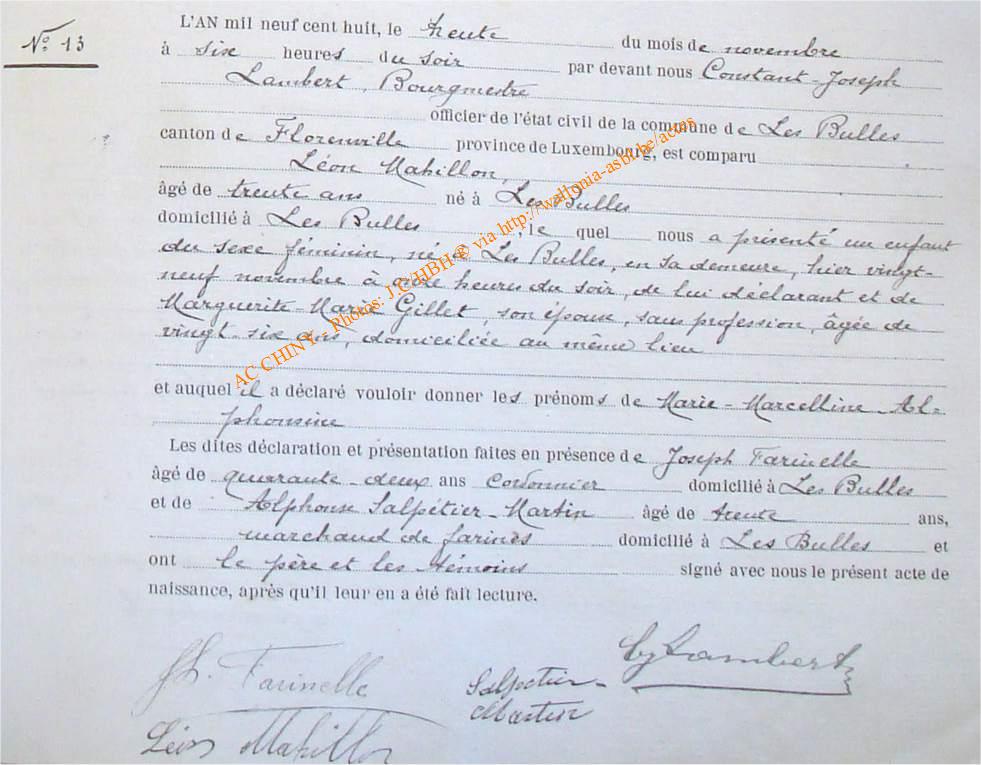 N° 13
L'AN mil neuf cent huit, le trente du mois de novembre
à six heures du soir par devant nous Constant-Joseph
Lambert, Bourgmestre
officier de l'état civil de la commune de Les Bulles
canton de Florenville province de Luxembourg, est comparu
Léon Mahillon,
âgé de trente ans né à Les Bulles
domicilié à Les Bulles, le quel nous a présenté un enfant
du sexe féminin, né à Les Bulles, en sa demeure, hier vingt-
neuf novembre à onze heures du soir, de lui déclarant et de
Marguerite-Marie Gillet, son épouse, sans profession, âgée de
vingt-six ans, domiciliée au même lieu
et auquel il a déclaré vouloir donner les prénoms de Marie-Marcelline-Al=
phonsine
Les dites déclaration et présentation faites en présence de Joseph Farinelle
âgé de quarante-deux ans Cordonnier domicilié à Les Bulles
et de Alphonse Salpétier-Martin âgé de trente ans,
marchand de farines domicilié à Les Bulles et
ont le père et les témoins signé avec nous le présent acte de
naissance, après qu'il leur en a été fait lecture.
Farinelle
Salpétier-
Martin
Lambert
Léon Mahillon
AC CHINY - Photos: J.C/HBH © via http://wallonia-asbl.be/actes